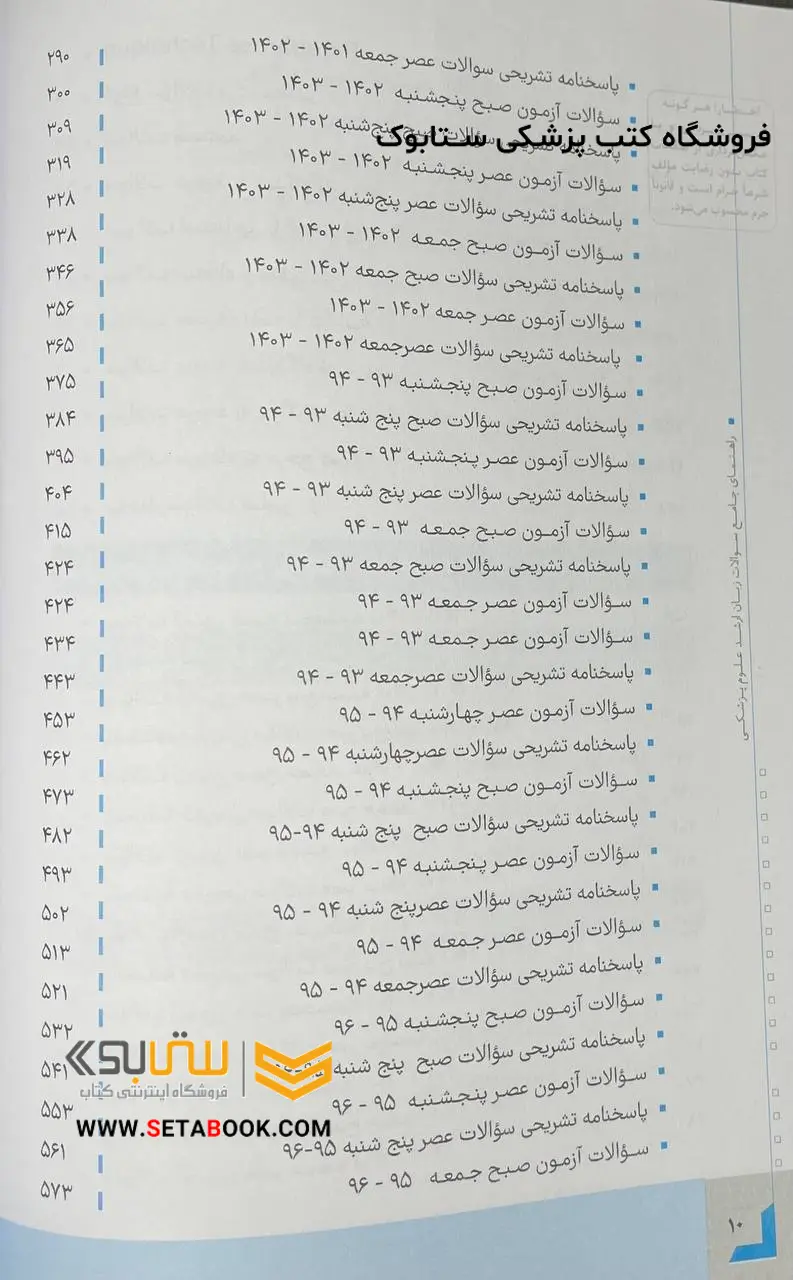 پاسخنامه تشریحی سوالات عصر جمعه ۱۴۰۱ - ۱۴۰۲ ۲۹۰
سؤالات آزمون صبح پنجشنبه ۱۴۰۲ - ۱۴۰۳ ۳۰۰
فروشگاه کتب پزشکی ستابوک
پاسخنامه تشریحی سؤالات صبح پنج‌شنبه ۱۴۰۲ - ۱۴۰۳ ۳۰۹
سؤالات آزمون عصر پنجشنبه ۱۴۰۲ - ۱۴۰۳ ۳۱۹
پاسخنامه تشریحی سؤالات عصر پنج‌شنبه ۱۴۰۲ - ۱۴۰۳ ۳۲۸
سؤالات آزمون صبح جمعه ۱۴۰۲ - ۱۴۰۳ ۳۳۸
پاسخنامه تشریحی سؤالات صبح جمعه ۱۴۰۲ - ۱۴۰۳ ۳۴۶
سؤالات آزمون عصر جمعه ۱۴۰۲ - ۱۴۰۳ ۳۵۶
پاسخنامه تشریحی سؤالات عصرجمعه ۱۴۰۲ - ۱۴۰۳ ۳۶۵
سؤالات آزمون صبح پنجشنبه ۹۳ - ۹۴ ۳۷۵
پاسخنامه تشریحی سؤالات صبح پنج شنبه ۹۳ - ۹۴ ۳۸۴
سؤالات آزمون عصر پنجشنبه ۹۳ - ۹۴ ۳۹۵
پاسخنامه تشریحی سؤالات عصر پنج شنبه ۹۳ - ۹۴ ۴۰۴
سؤالات آزمون صبح جمعه ۹۳ - ۹۴ ۴۱۵
پاسخنامه تشریحی سؤالات صبح جمعه ۹۳ - ۹۴ ۴۲۴
سؤالات آزمون عصر جمعه ۹۳ - ۹۴ ۴۲۴
سؤالات آزمون عصر جمعه ۹۳ - ۹۴ ۴۳۴
پاسخنامه تشریحی سؤالات عصرجمعه ۹۳ - ۹۴ ۴۴۳
سؤالات آزمون عصر چهارشنبه ۹۴ - ۹۵ ۴۵۳
پاسخنامه تشریحی سؤالات عصرچهارشنبه ۹۴ - ۹۵ ۴۶۲
سؤالات آزمون صبح پنجشنبه ۹۴ - ۹۵ ۴۷۳
پاسخنامه تشریحی سؤالات صبح پنج شنبه ۹۴-۹۵ ۴۸۲
سؤالات آزمون عصر پنجشنبه ۹۴ - ۹۵ ۴۹۳
پاسخنامه تشریحی سؤالات عصرپنج شنبه ۹۴ - ۹۵ ۵۰۲
سؤالات آزمون عصر جمعه ۹۴ - ۹۵ ۵۱۳
پاسخنامه تشریحی سؤالات عصرجمعه ۹۴ - ۹۵ ۵۲۱
سؤالات آزمون صبح پنجشنبه ۹۵ - ۹۶ ۵۳۲
پاسخنامه تشریحی سؤالات صبح پنج شنبه ۵۴۱
سؤالات آزمون عصر پنجشنبه ۹۵ - ۹۶ ۵۵۳
پاسخنامه تشریحی سؤالات عصر پنج شنبه ۹۵-۹۶ ۵۶۱
سؤالات آزمون صبح جمعه ۹۵ - ۹۶ ۵۷۳
ستابوک
فروشگاه اینترنتی کتاب
WWW.SETABOOK.COM
راهنمای جامع سوالات زبان ارشد علوم پزشکی
۱۰